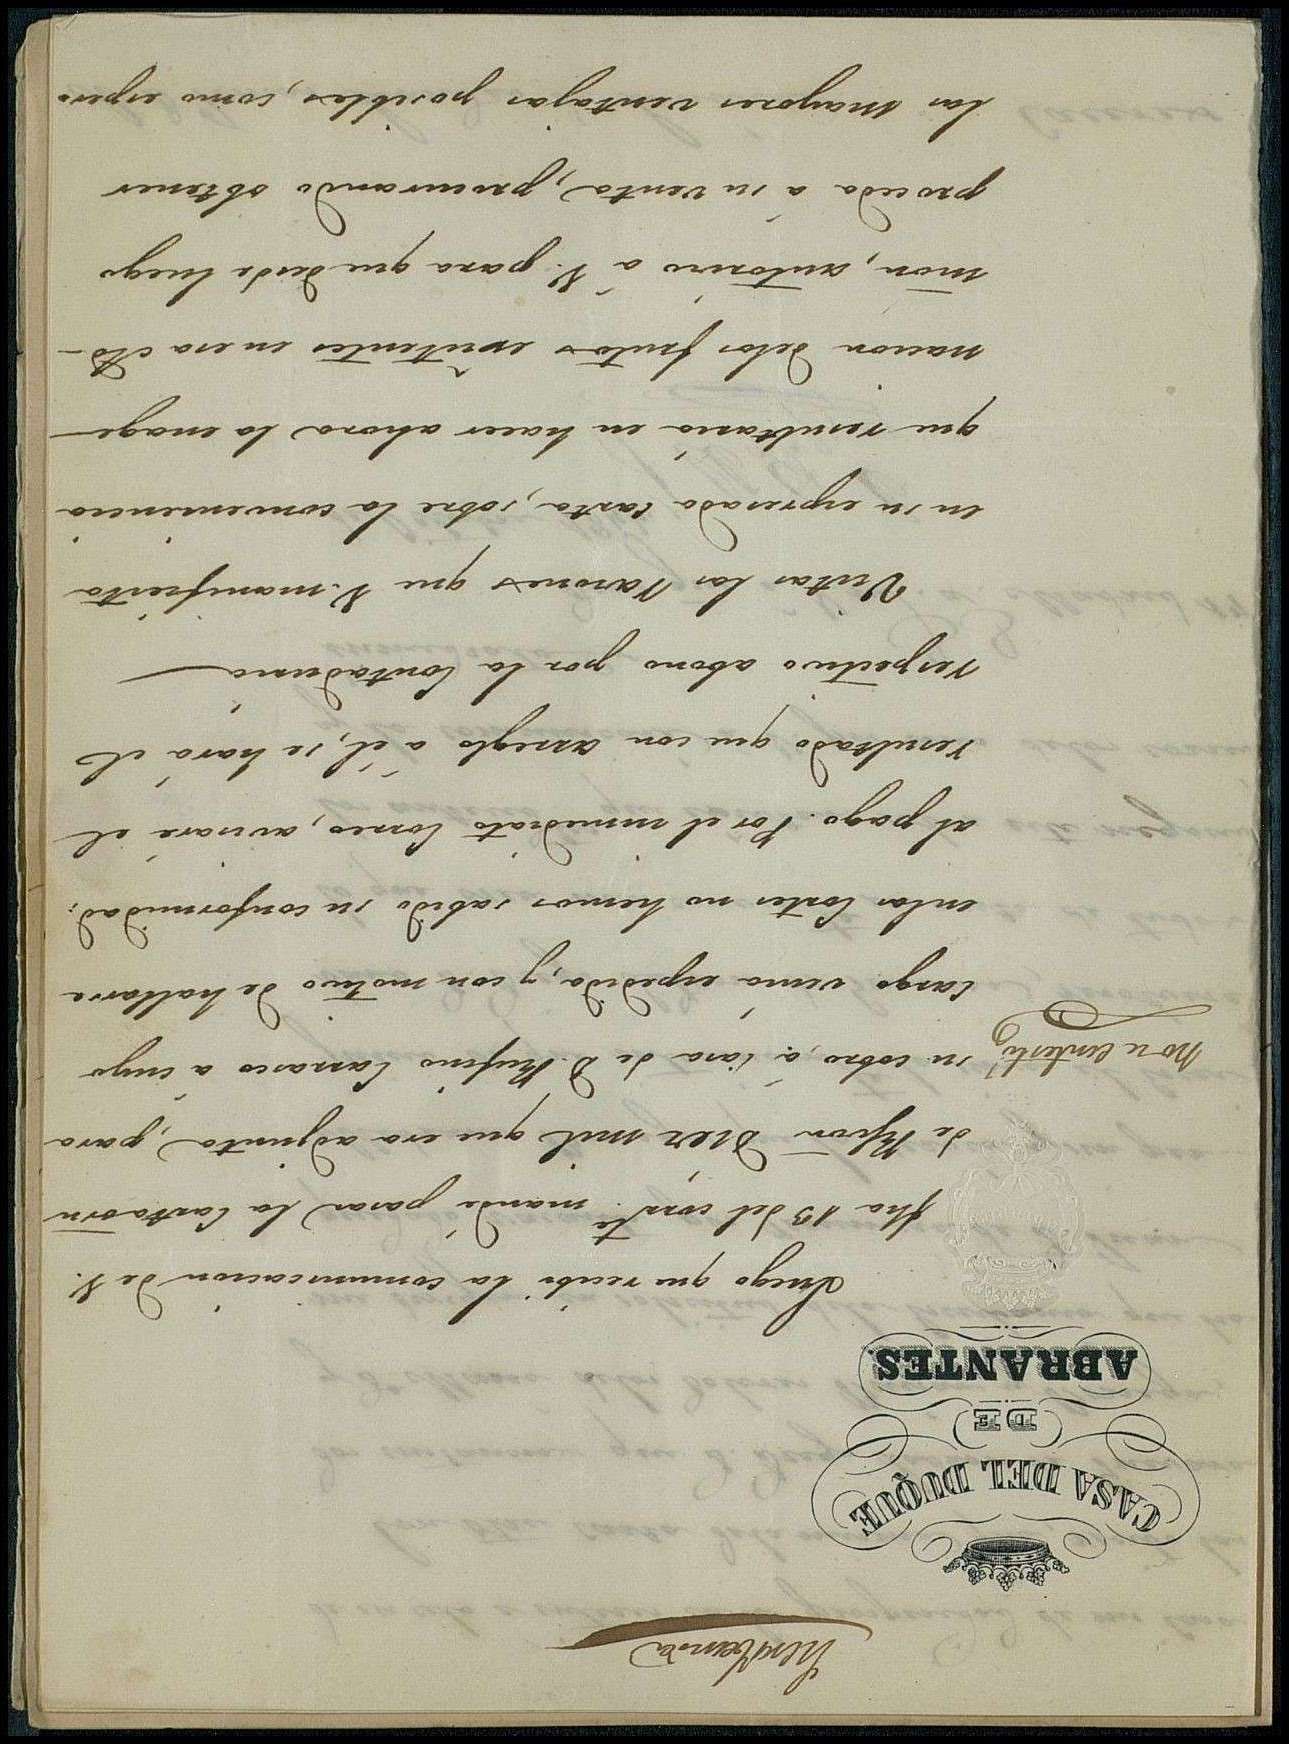 CASA DEL DUQUE
DE
ABRANTES.
Luego que recibí la comunicacion de V.
fha 13 del corr.te mandé pasar la Carta orn
de Rs.von Diez mil que era adjunta, para
su cobro, á casa de D. Rufino Carrasco a cuyo
no se contestó
cargo venia espedida, y con motivo de hallarse
en las Cortes no hemos sabido su conformidad
al pago. Por el inmediato Correo, avisaré el
resultado que con arreglo a él, se hará el
respectivo abono por la Contaduria
Vistas las razones que V. manifiesta
en su espresada carta, sobre la conveniencia
que resultaria en hacer ahora la enage-
nacion delos frutos existentes en esa Ad-
mon, autorizo á V. para que desde luego
proceda á su venta, procurando obtener
las mayores ventajas posibles, como espero